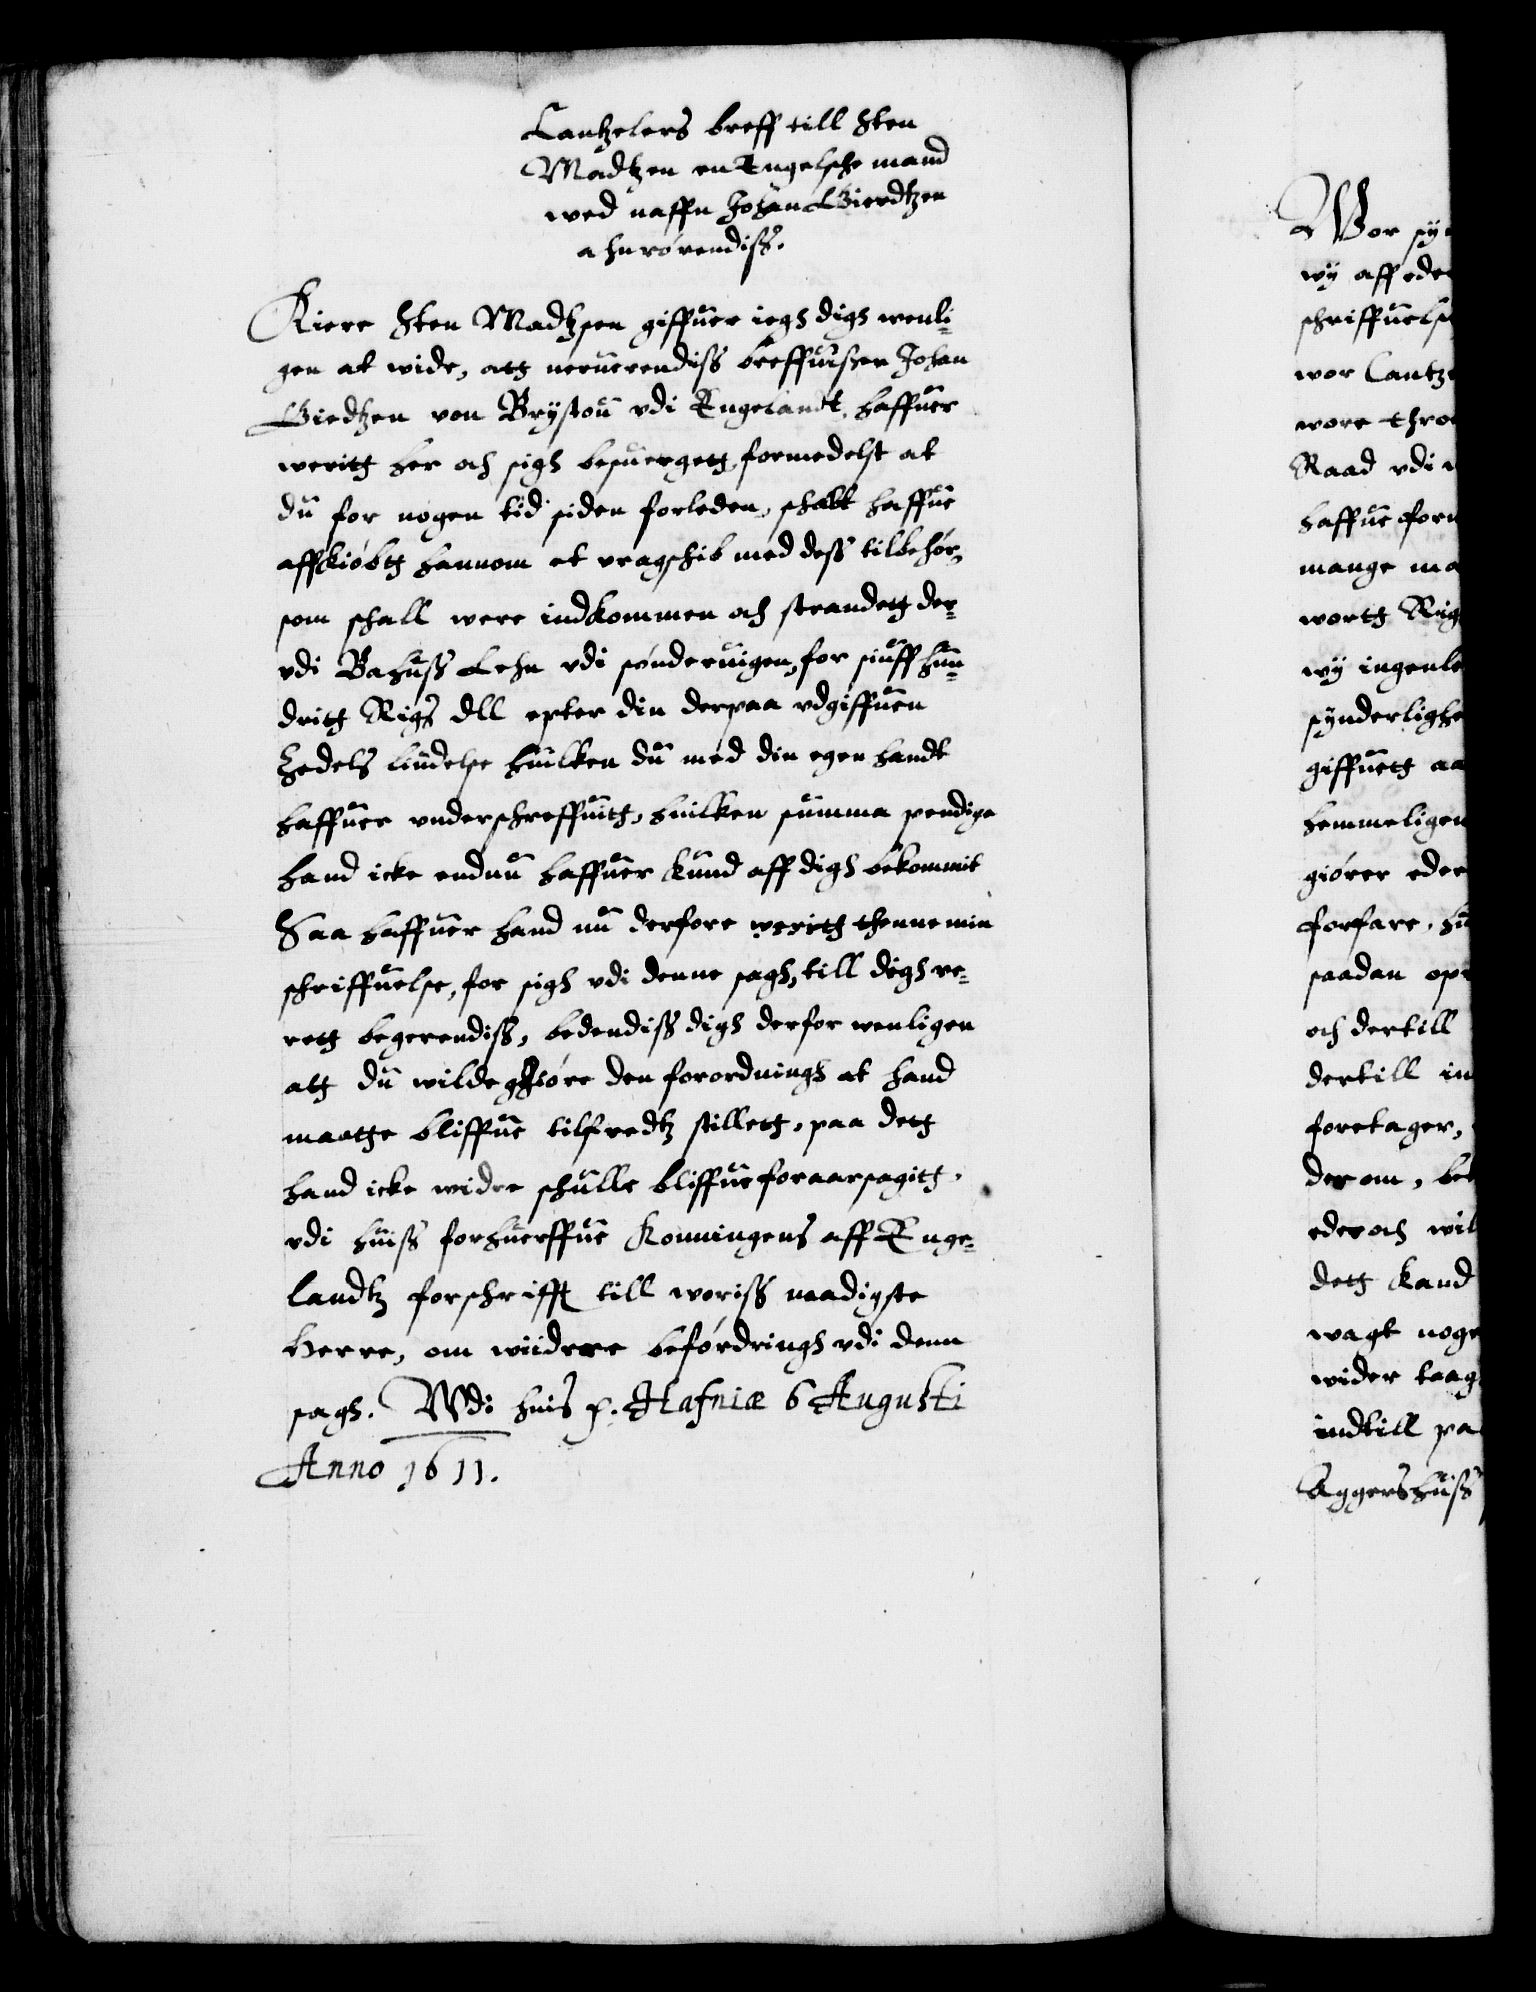 Cantzelers breff till Sten
Madtzen en Engelsche mand
wed naffn Johan Gierdtzen
ahnrörendiss.
Kiere Sten Madtzsen giffuer iegh digh wenli-
gen at wide, att neruerendiss breffuisser Johan
Giedtzen von Brystou vdi Engelandt, haffuer
weritt her och sigh besuergett, formedelst at
du for nogen tid siden forleden, schalt haffue
affkiöbtt hannom et vragschib med dess tilbehör,
som schall were indkommen och strandett der-
vdi Bahuss Lehn vdi sönderuigen, for siuff hun-
dritt Rigs dll epter din derpaa vdgiffuen
Zedels liudelse huilken du med din egen handt
haffuer underschreffuitt, huilken summa pendige
hand icke endnu haffuer kund aff digh bekommit
Saa haffuer hand nu derfore weritt thenne min
schriffuelse, for sigh vdi denne sagh, till digh ve-
rett begerendiss, bedendiss digh derfor wenligen
att du wilde giöre den forordningh at hand
maatte bliffue tilfredtz stillett, paa dett
hand icke widre schulle bliffue foraarsagitt,
vdi huiss forhuerffue Konningens aff Enge-
landtz forschrifft till woriss naadigste
Herre, om wiidrere befördringh vdi denn
sagh. Wdi huis p. Hafniæ 6 Augusti
Anno 1611.
Wor syn
wÿ aff eder
schriffuelse
wor Cantze
wore thro
Raad vdi
haffue forn
mange ma
wortt Rig
wÿ ingenle
synderlighe
giffuett aa
hemmeligen
giörer eder
forfare, hu
saadan op
och dertill
dertill in
foretager,
der om, be
eder och wil
dett kand
wagt noge
wider taag
indtill pa
Aggershuss